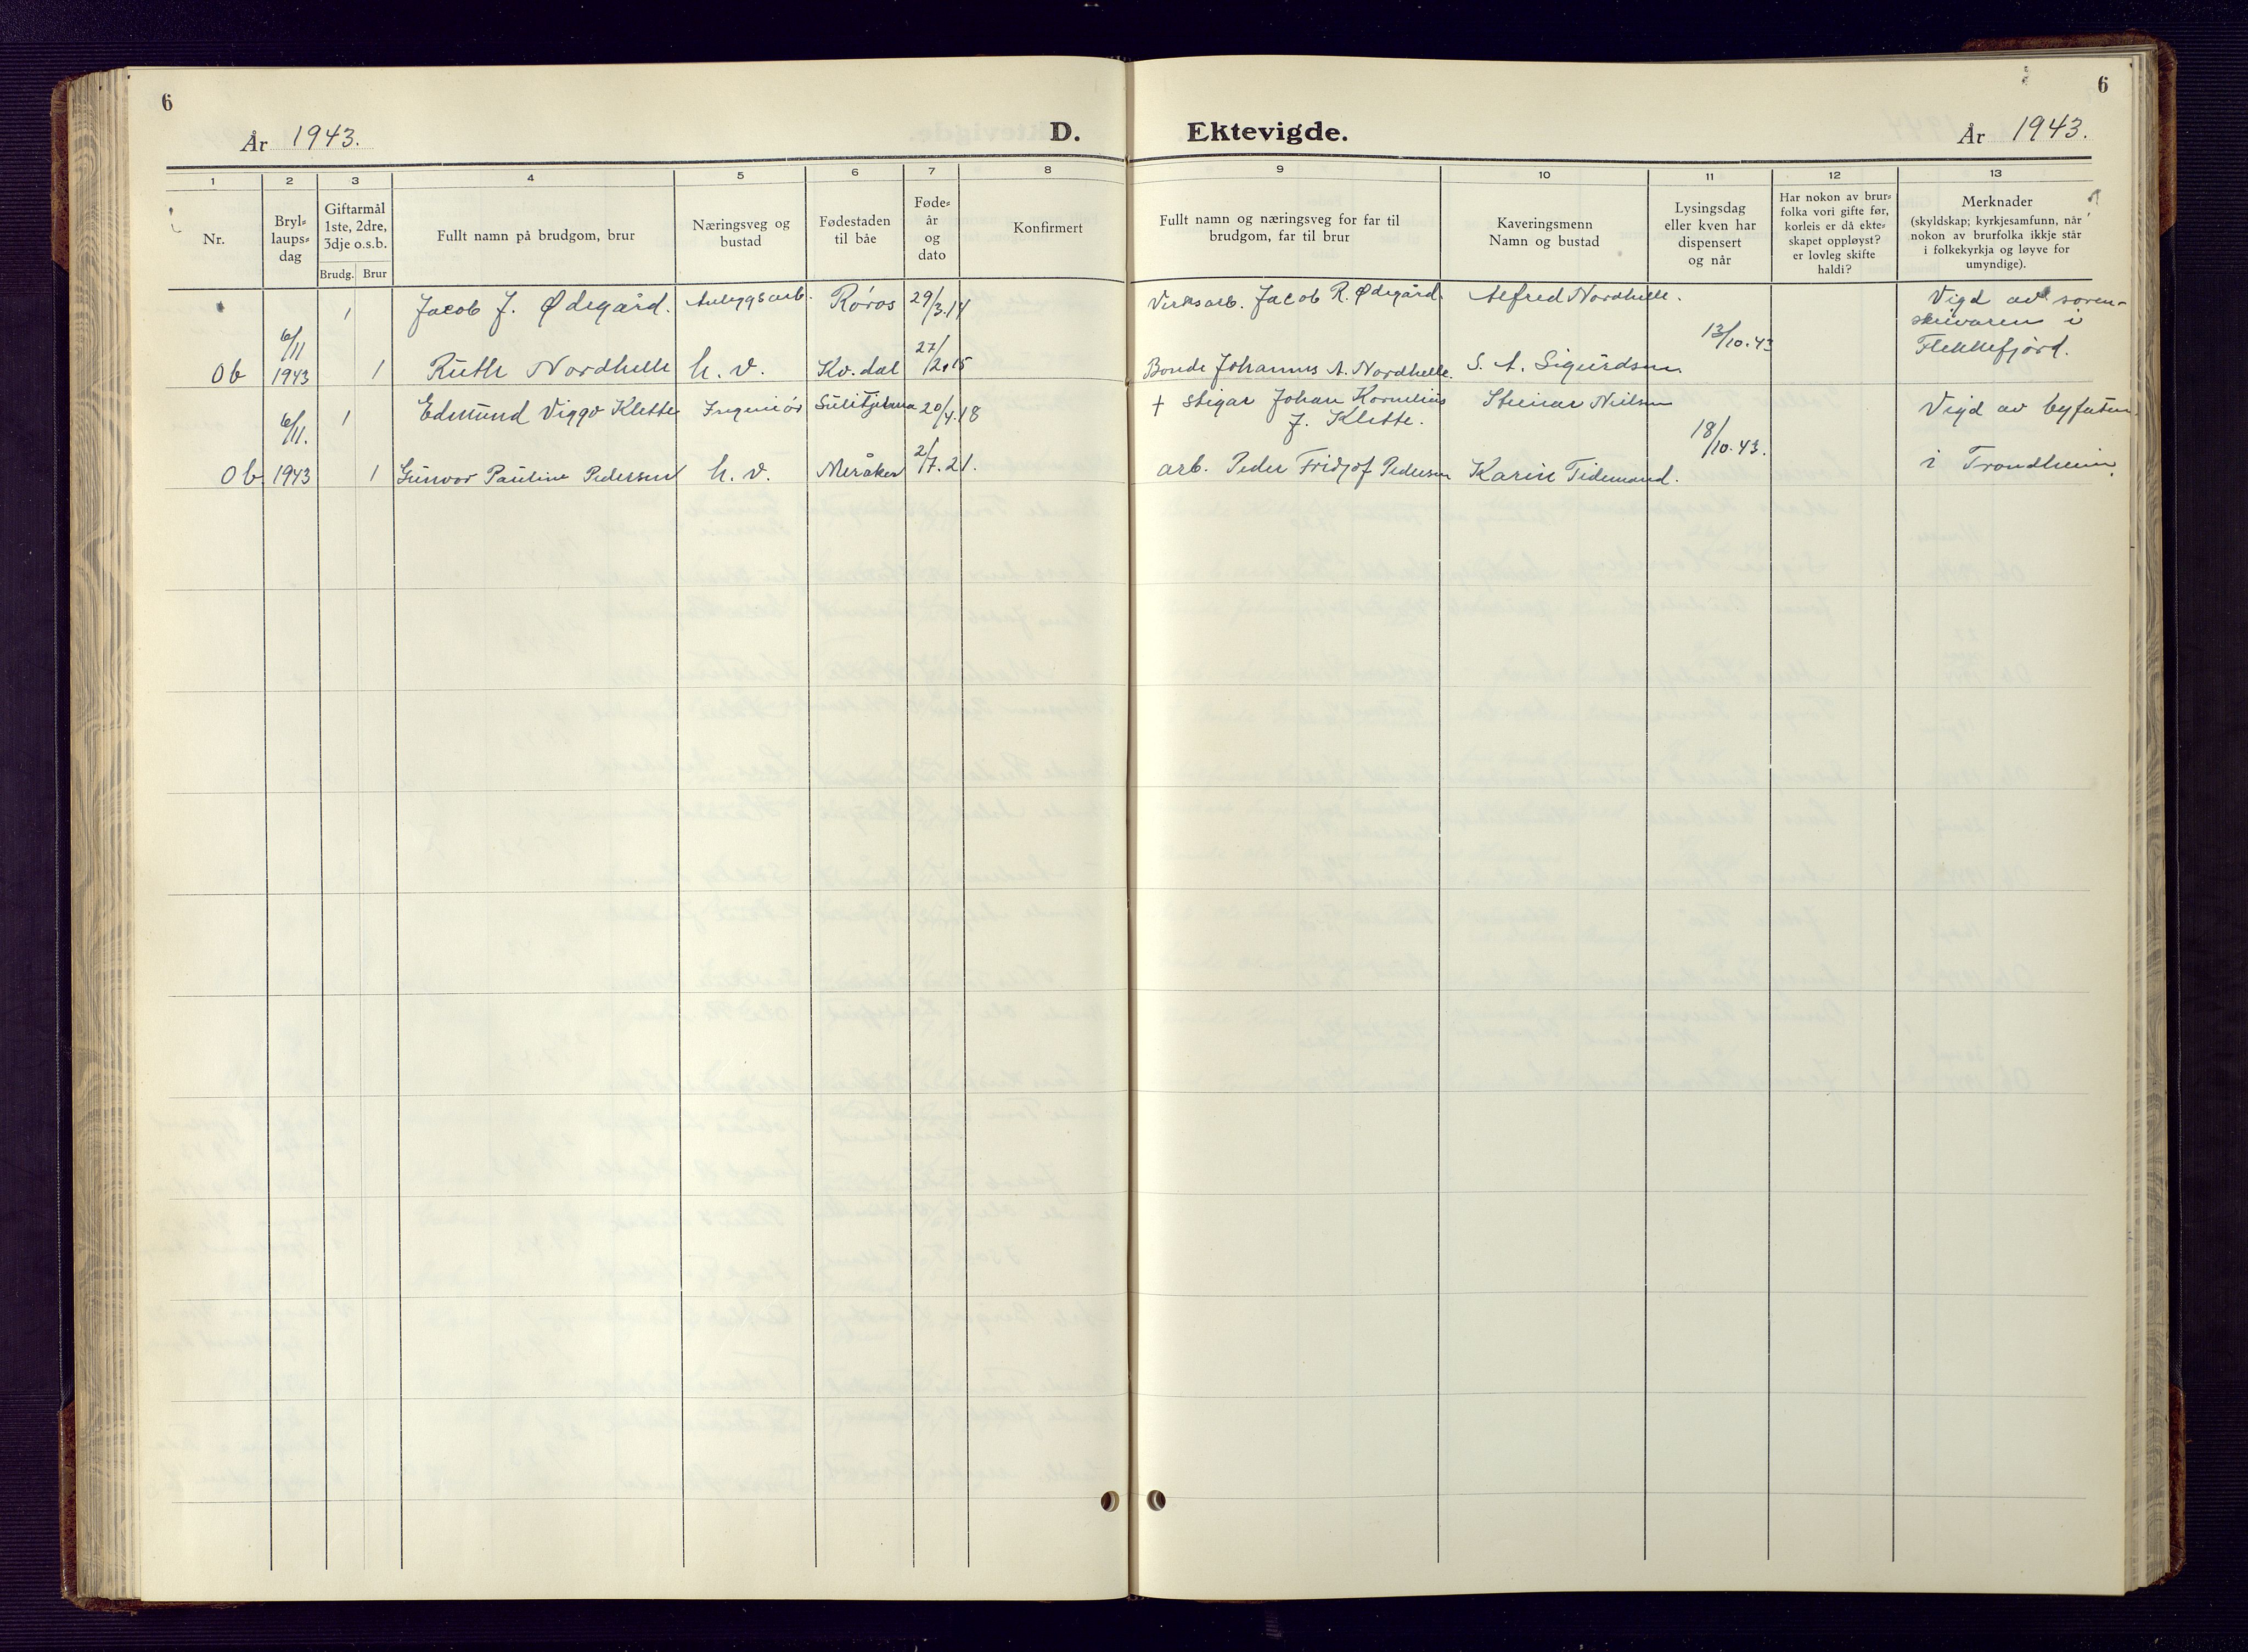 6
År 1943.
D.
1
2
3
4
5
6
7
8
Nr.
Bryl=
laups=
dag
Giftarmål
1ste, 2dre,
3dje o.s.b.
Brudg. Brur
Fullt namn på brudgom, brur
Næringsveg og
bustad
Fødestaden
til båe
Føde=
år
og
dato
Konfirmert
1
Jacob J. Ødegård.
Anleggsarb.
Røros
29/3.14
6/11
Ob
1943
1
Ruth Nordhelle
h. v.
Kv.dal
27/2.15
1
Edmund Viggo Klette
Ingeniør
Sulitjelma
20/4.18
6/11.
Ob
1943
1
Gunvor Pauline Pedersen
h. v.
Meråker
2/7.21.
6
Ektevigde.
År 1943.
9
10
11
12
13
Fullt namn og næringsveg for far til
brudgom, far til brur
Kaveringsmenn
Namn og bustad
Lysingsdag
eller kven har
dispensert
og når
Har nokon av brur=
folka vori gifte før,
korleis er då ekte=
skapet oppløyst?
er lovleg skifte
haldi?
Merknader
(skyldskap; kyrkjesamfunn, når
nokon av brurfolka ikkje står
i folkekyrkja og løyve for
umyndige).
Verksarb. Jacob R. Ødegård.
Alfred Nordhelle.
Vigd av soren-
skrivaren i
Flekkefjord.
13/10.43
Bonde Johannes A. Nordhelle.
S. A. Sigurdsen
† stigar Johan Kornelius
J. Klette.
Steinar Nielsen
Vigd av byfuten
18/10.43.
arb. Peder Fridjof Pedersen
Karin Tidemand.
i Trondheim.